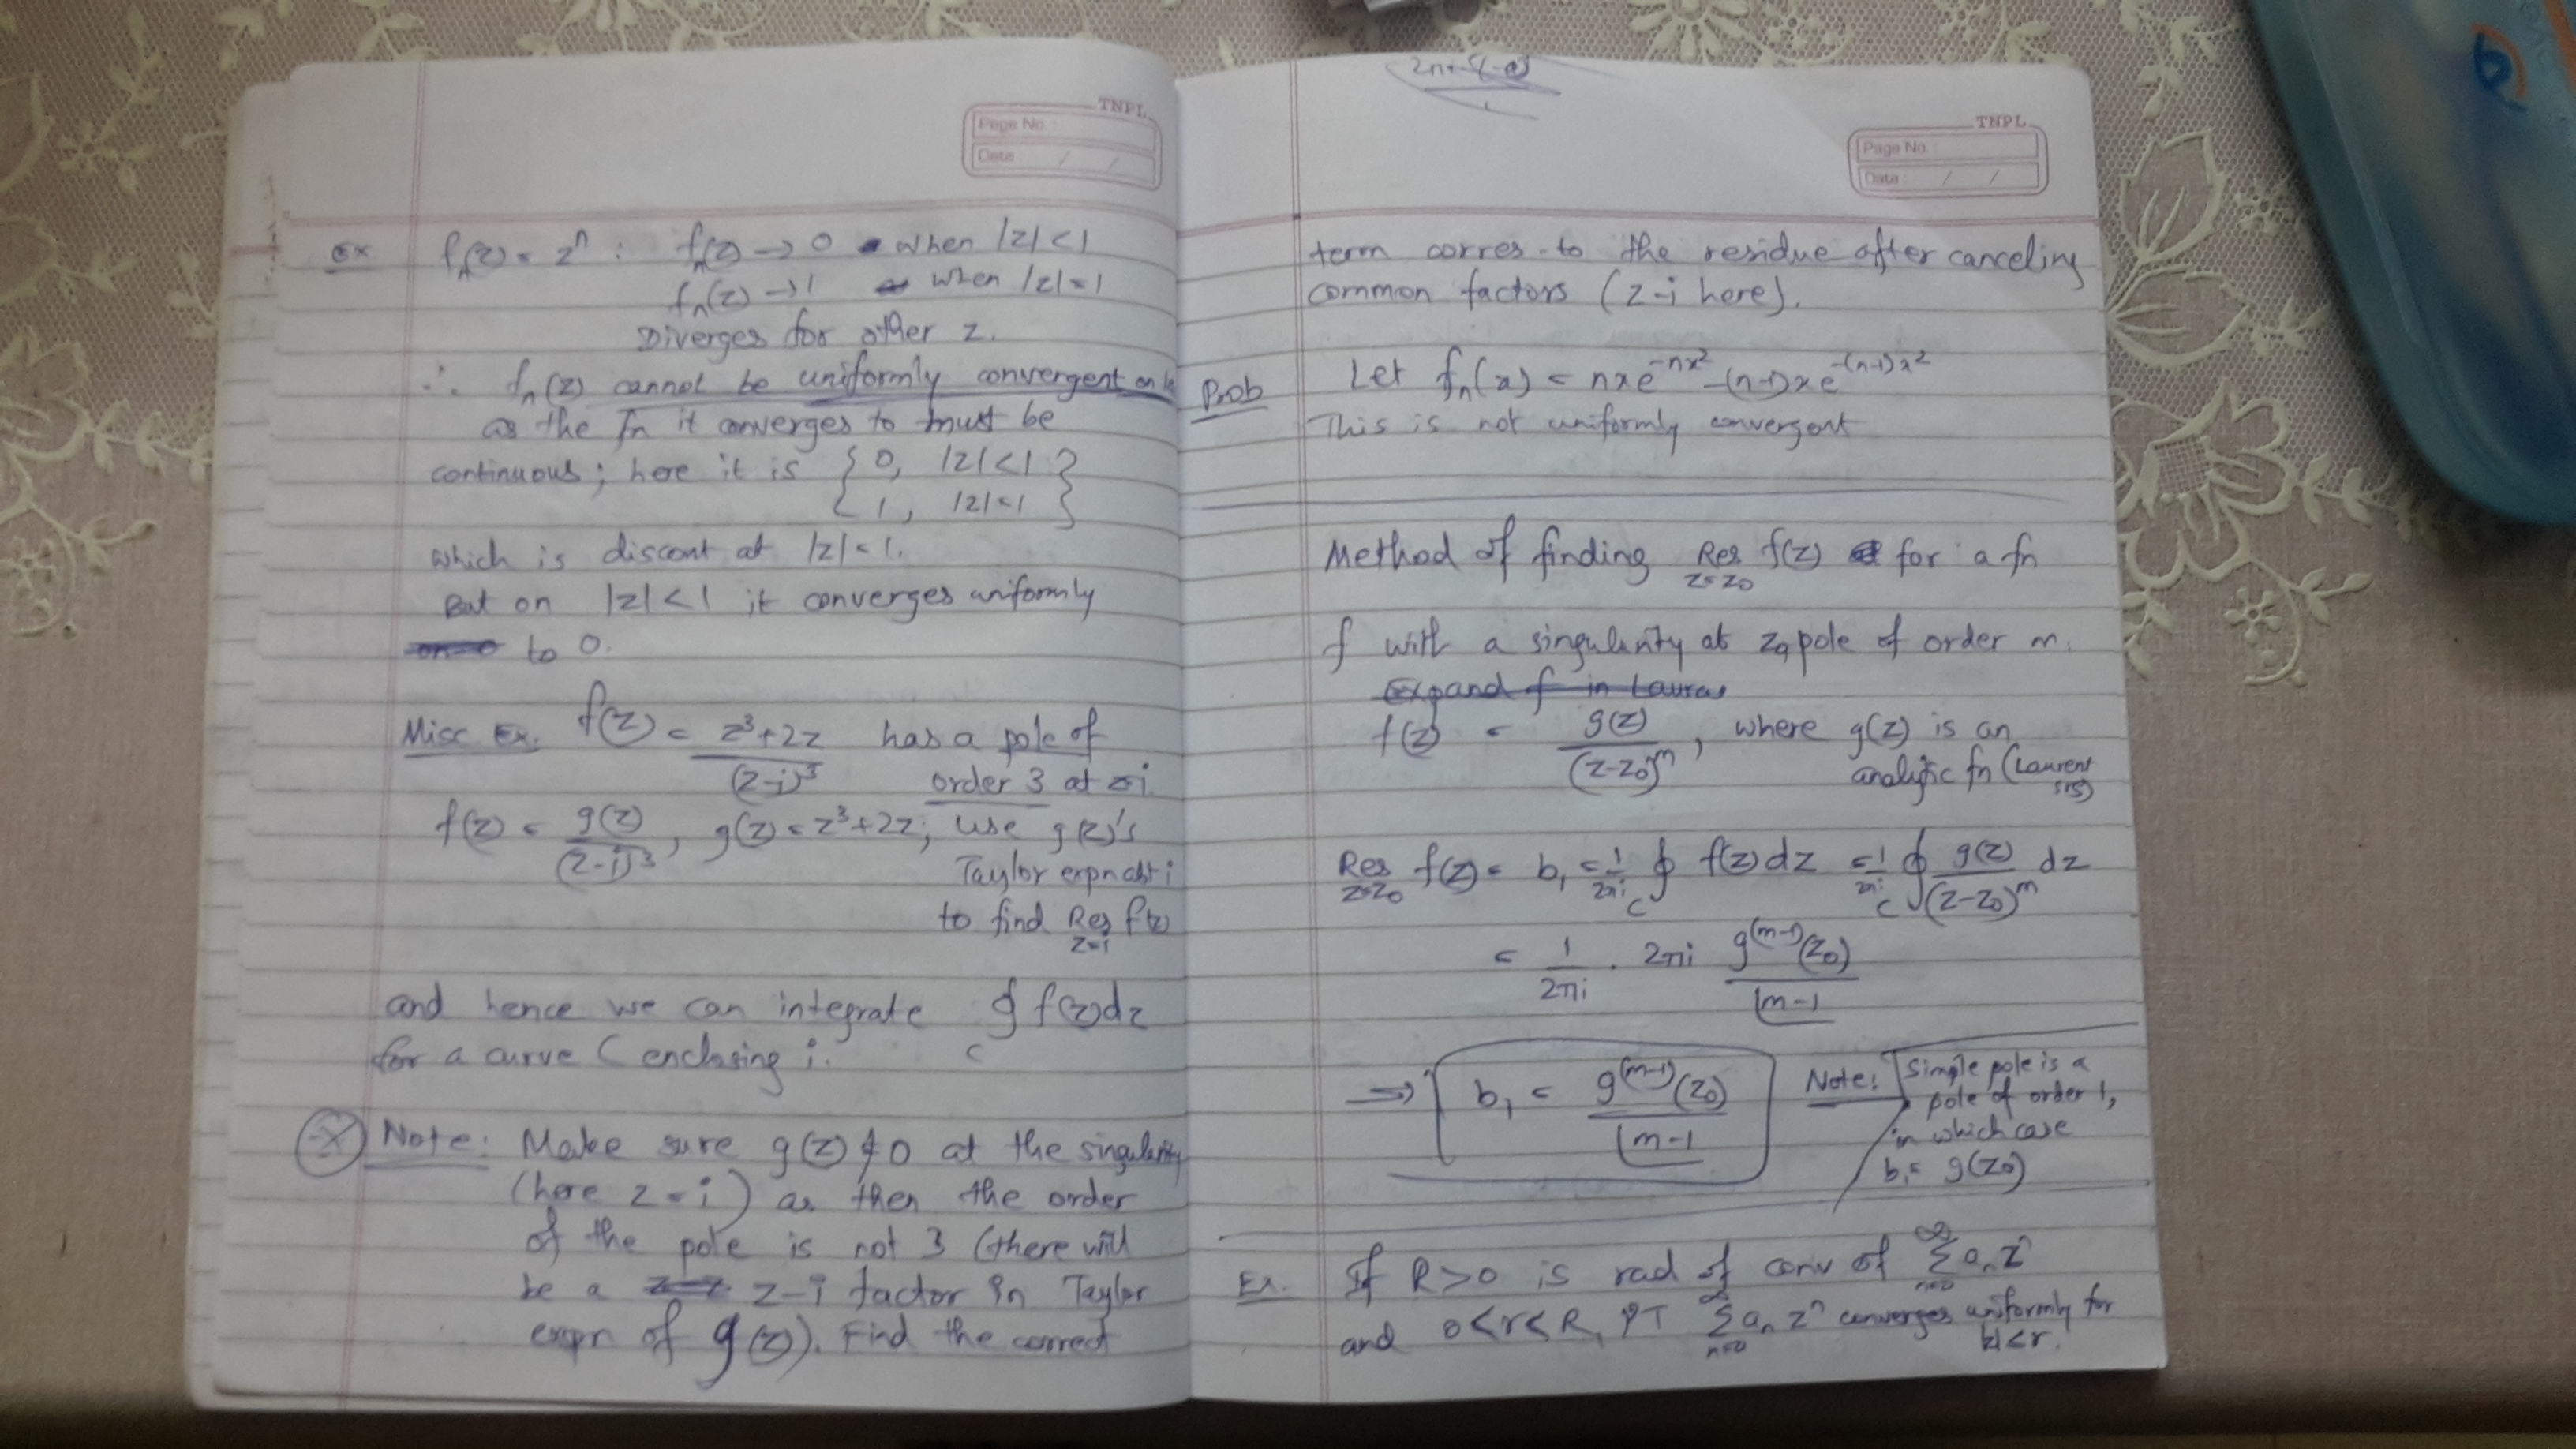 TNPL
Page No. :
Date : / /
Ex fₙ(z) = zⁿ : fₙ(z) → 0 when |z| < 1
fₙ(z) → 1 when |z| = 1
Diverges for other z.
∴ fₙ(z) cannot be uniformly convergent on
as the fn it converges to must be
continuous; here it is { 0, |z| < 1
1, |z| = 1 }
which is discont at |z| = 1.
But on |z| < 1 it converges uniformly
to 0.
Misc. Ex. f(z) = (z³+2z)/(z-i)³ has a pole of
order 3 at i.
f(z) = g(z)/(z-i)³, g(z) = z³+2z; use g(z)'s
Taylor expn abt i
to find Res_{z=i} f(z)
and hence we can integrate ∮_C f(z)dz
for a curve C enclosing i.
Note: Make sure g(z) ≠ 0 at the singularity
(here z = i) as then the order
of the pole is not 3 (there will
be a z-i factor in Taylor
expn of g(z)). Find the correct
TNPL
Page No. :
Date : / /
term corres. to the residue after canceling
common factors (z-i here).
Prob Let fₙ(x) = nxe^{-nx²} - (n-1)xe^{-(n-1)x²}
This is not uniformly convergent
Method of finding Res_{z=z₀} f(z) for a fn
f with a singularity at z₀, pole of order m.
Expand f in
f(z) = g(z)/(z-z₀)^m, where g(z) is an
analytic fn (Laurent
srs)
Res_{z=z₀} f(z) = b₁ = 1/2πi ∮_C f(z)dz = 1/2πi ∮_C g(z)/(z-z₀)^m dz
= 1/2πi . 2πi g^{(m-1)}(z₀)/|m-1
⇒ b₁ = g^{(m-1)}(z₀)/|m-1
Note: Simple pole is a
pole of order 1,
in which case
b₁ = g(z₀)
Ex. If R > 0 is rad of conv of Σ_{n=0}^∞ aₙzⁿ
and 0 < r < R, PT Σ_{n=0}^∞ aₙzⁿ converges uniformly for
|z| < r.